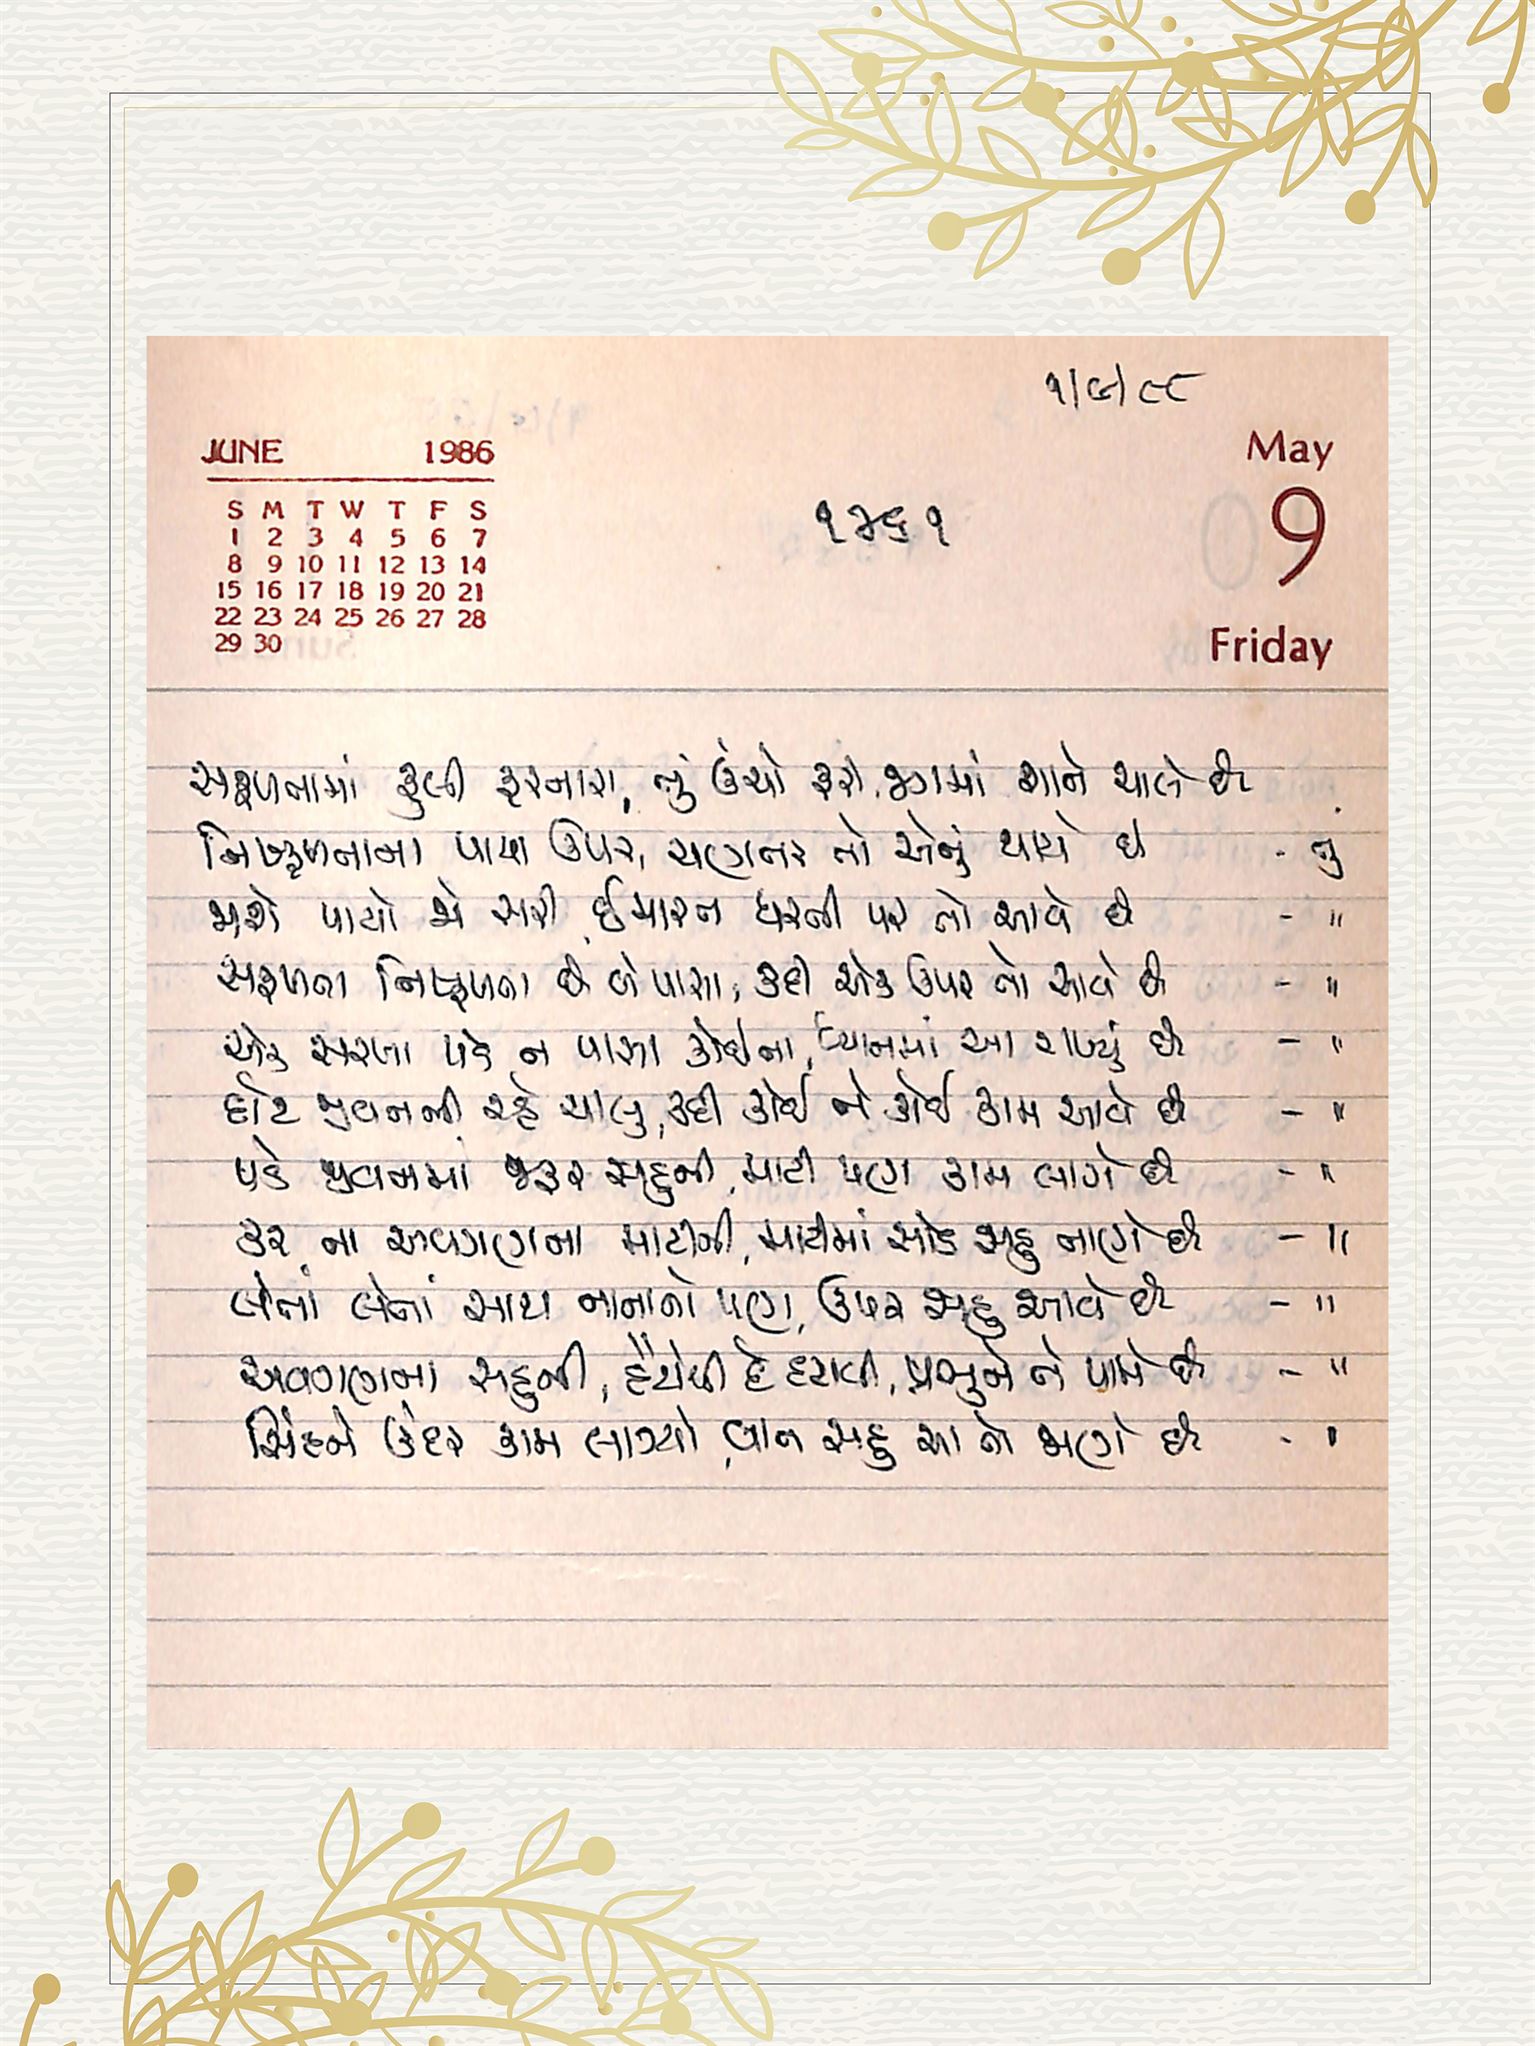 ૧/૯/૮૮
JUNE 1986
May
S M T W T F S
1 2 3 4 5 6 7
8 9 10 11 12 13 14
15 16 17 18 19 20 21
22 23 24 25 26 27 28
29 30
૧૪૬૧
9
Friday
સફળતામાં ફુલી ફરનારા, તું ઉંચો ફરી જગમાં શાને ચાલે છે
નિષ્ફળતાના પાયા ઉપર, ચણતર તો એનું થાયે છે - તું
મળે પાયો જે સરી, ઈમારત ધરતી પર તો આવે છે - "
સફળતા નિષ્ફળતા છે બે પાસા, કદી એક ઉપર તો આવે છે - "
એક સરખા પડે ન પાસા કોઈના, ધ્યાનમાં આ રાખ્યું છે - "
દોટ જીવનની રહે ચાલુ, કદી કોઈ ને કોઈ કામ આવે છે - "
પડે જીવનમાં જરૂર સહુની, માટી પણ કામ લાગે છે - "
કર ના અવગણના માટીની, માટીમાં સોડ સહુ તાણે છે - "
લેતાં લેતાં સાથ નાનાનો પણ, ઉપર સહુ આવે છે - "
અવગણના સહુની, હૈયેથી દે હટાવી, પ્રભુને તે પામે છે - "
સિંહને ઉંદર કામ લાગ્યો, વાત સહુ આ તો જાણે છે - "